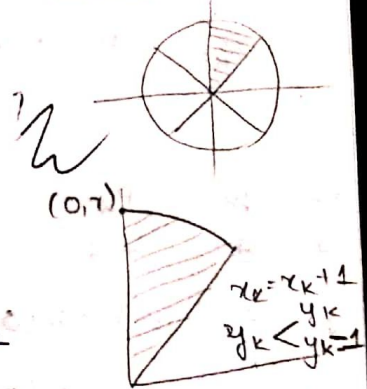 (0,r)
x_k = x_k+1
y_k
y_k < y_k-1